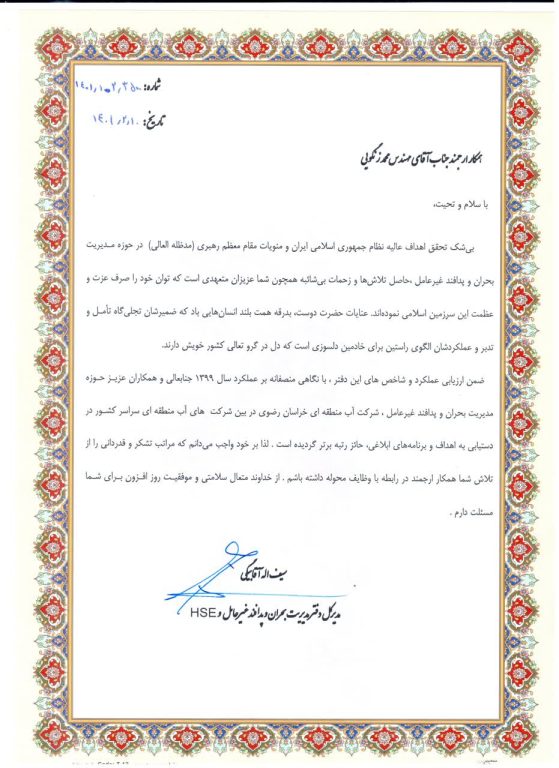 شماره: ۱۴۰۱/۱۰۰۲/۳۵۰
تاریخ: ۱۴۰۱/۲/۱۰
همکار ارجمند جناب آقای مهندس محمد زنگویی
با سلام و تحیت،
بی‌شک تحقق اهداف عالیه نظام جمهوری اسلامی ایران و منویات مقام معظم رهبری (مدظله العالی) در حوزه مدیریت
بحران و پدافند غیرعامل ،حاصل تلاش‌ها و زحمات بی‌شائبه همچون شما عزیزان متعهدی است که توان خود را صرف عزت و
عظمت این سرزمین اسلامی نموده‌اند. عنایات حضرت دوست، بدرقه همت بلند انسان‌هایی باد که ضمیرشان تجلی‌گاه تأمل و
تدبر و عملکردشان الگوی راستین برای خادمین دلسوزی است که دل در گرو تعالی کشور خویش دارند.
ضمن ارزیابی عملکرد و شاخص های این دفتر ، با نگاهی منصفانه بر عملکرد سال ۱۳۹۹ جنابعالی و همکاران عزیز حوزه
مدیریت بحران و پدافند غیرعامل ، شرکت آب منطقه ای خراسان رضوی در بین شرکت های آب منطقه ای سراسر کشور در
دستیابی به اهداف و برنامه‌های ابلاغی، حائز رتبه برتر گردیده است . لذا بر خود واجب می‌دانم که مراتب تشکر و قدردانی را از
تلاش شما همکار ارجمند در رابطه با وظایف محوله داشته باشم . از خداوند متعال سلامتی و موفقیت روز افزون برای شما
مسئلت دارم .
سیف اله آقابیگی
مدیرکل دفتر مدیریت بحران و پدافند غیرعامل و HSE